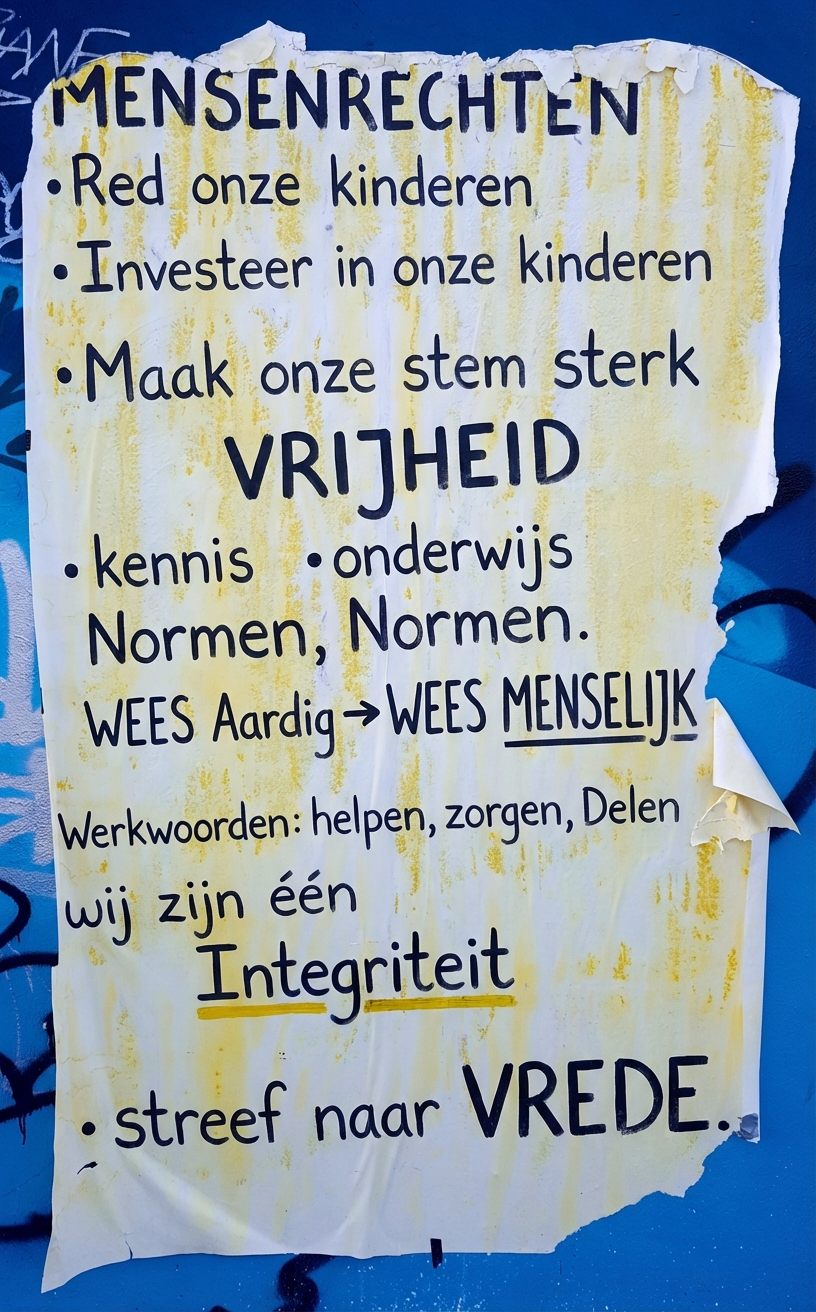 MENSENRECHTEN
• Red onze kinderen
• Investeer in onze kinderen
• Maak onze stem sterk
VRIJHEID
• kennis • onderwijs
Normen, Normen.
WEES Aardig → WEES MENSELIJK
Werkwoorden: helpen, zorgen, Delen
wij zijn één
Integriteit
• streef naar VREDE.